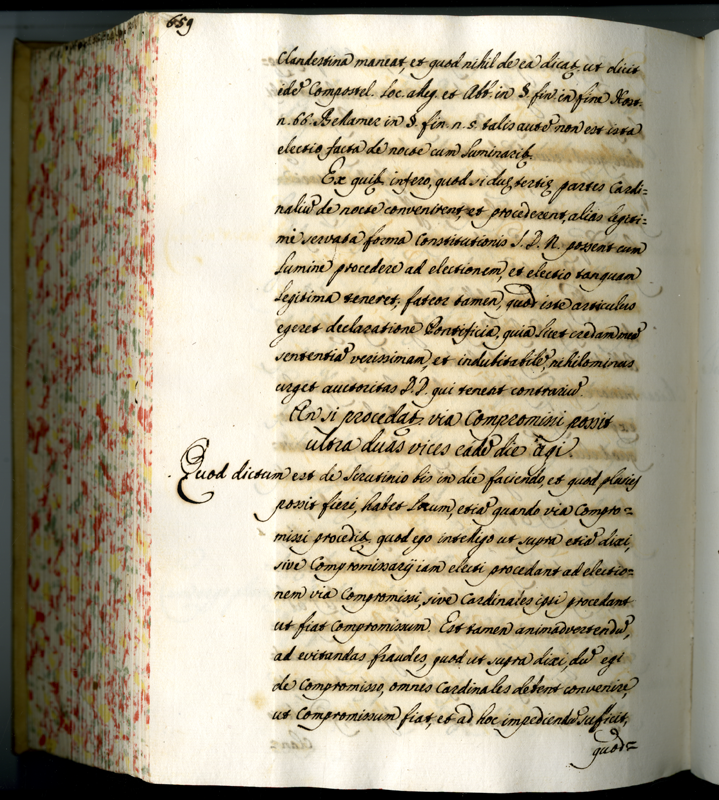 659
Clandestina maneat, et quod nihil de ea dicat, ut dicit
idẽ Compostel. loc. alleg. et Abb. in §. fin. in fine Host.
n. 66. Bellamer in §. fin n. 5. talis autẽ non est ista
electio facta de nocte cum luminarib.
Ex quib. infero, quod si duę tertię partes Cardi=
naliũ de nocte convenirent, et procederent, alias legiti=
mè servata forma Constitutionis S. D. N. possent cum
lumine procedere ad electionem, et electio tanquam
legitima teneret; fateor tamen, quod iste articulus
egeret declaratione Pontificia, quia licet credam meã
sententiã verissimam, et indubitabilẽ, nihilominus
urget auctoritas D.D. qui teneat contrariũ.
An si procedat, via Compromissi possit
ultra duas vices eadẽ die agi.
Quod dictum est de Scrutinio bis in die faciendo, et quod pluries
possit fieri, habet locum, etiã quando via Compro=
missi procedit, quod ego intelligo ut supra etiã dixi,
sive Compromissarij iam electi procedant ad electio=
nem via Compromissi, sive Cardinales ipsi procedant
ut fiat Compromissum. Est tamen animadvertendũ,
ad evitandas fraudes, quod ut supra dixi, dũ egi
de Compromisso, omnes Cardinales debent convenire,
ut Compromissum fiat, et ad hoc impediendũ sufficit,
quod=